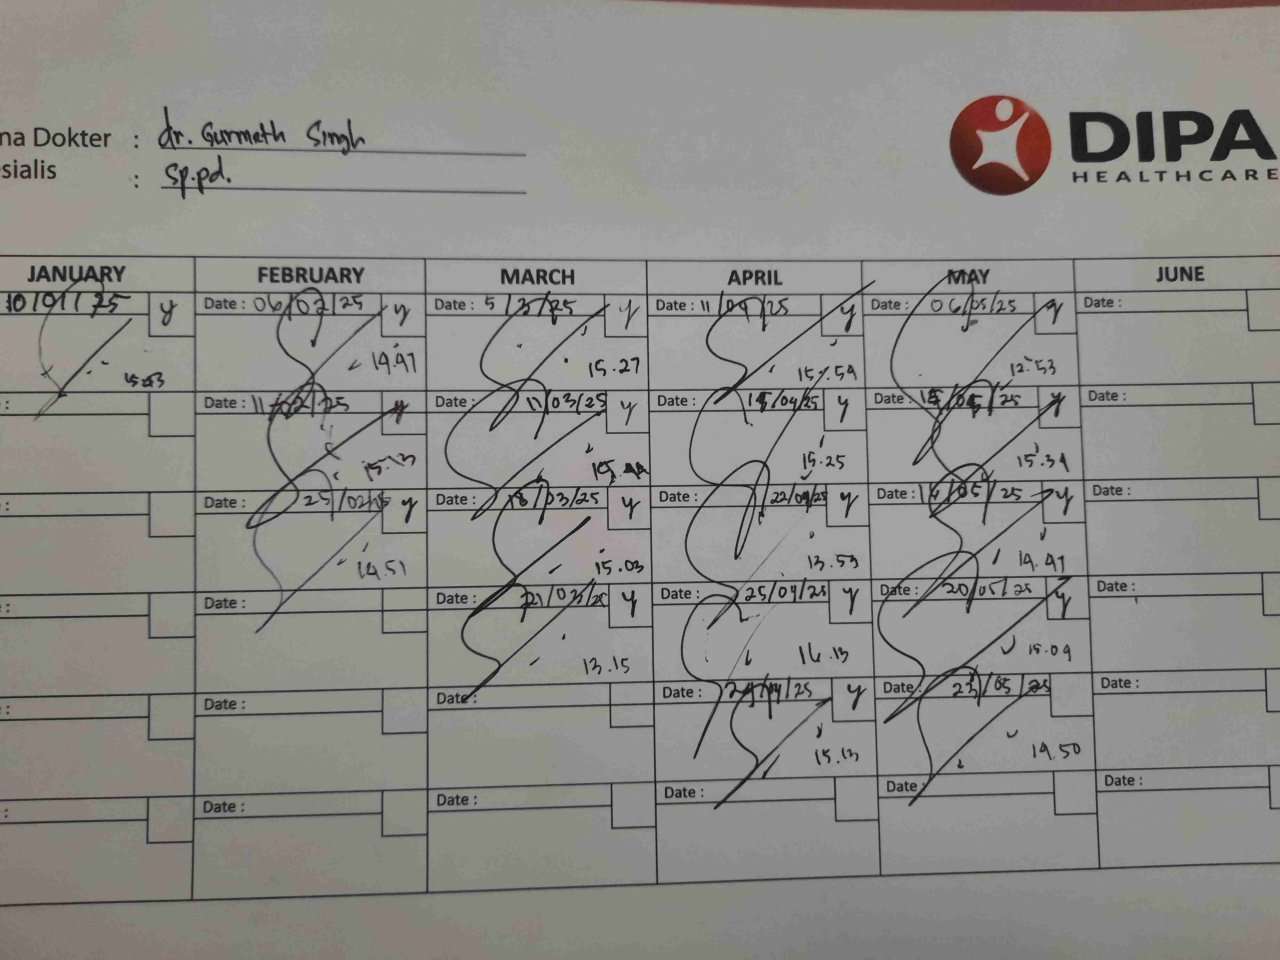 na Dokter : dr. Gurmath Singh
sialis : Sp.pd.
DIPA
HEALTHCARE
JANUARY FEBRUARY MARCH APRIL MAY JUNE
10/01/25 y Date : 06/02/25 y Date : 5/3/25 y Date : 11/04/25 y Date : 06/05/25 y Date :
14.47 15.27 15.54 12.53
: Date : 11/02/25 y Date : 11/03/25 y Date : /04/25 y Date : /05/25 y Date :
15.13 15.25 15.34
: Date : 25/02/25 y Date : 18/03/25 y Date : 22/04/25 y Date : /05/25 y Date :
14.51 15.03 13.53 14.47
: Date : Date : 21/03/25 y Date : 25/04/25 y Date : 20/05/25 y Date :
13.15 16.13 15.09
: Date : Date : Date : 29/04/25 y Date : 23/05/25 Date :
15.13 14.50
: Date : Date : Date : Date : Date :